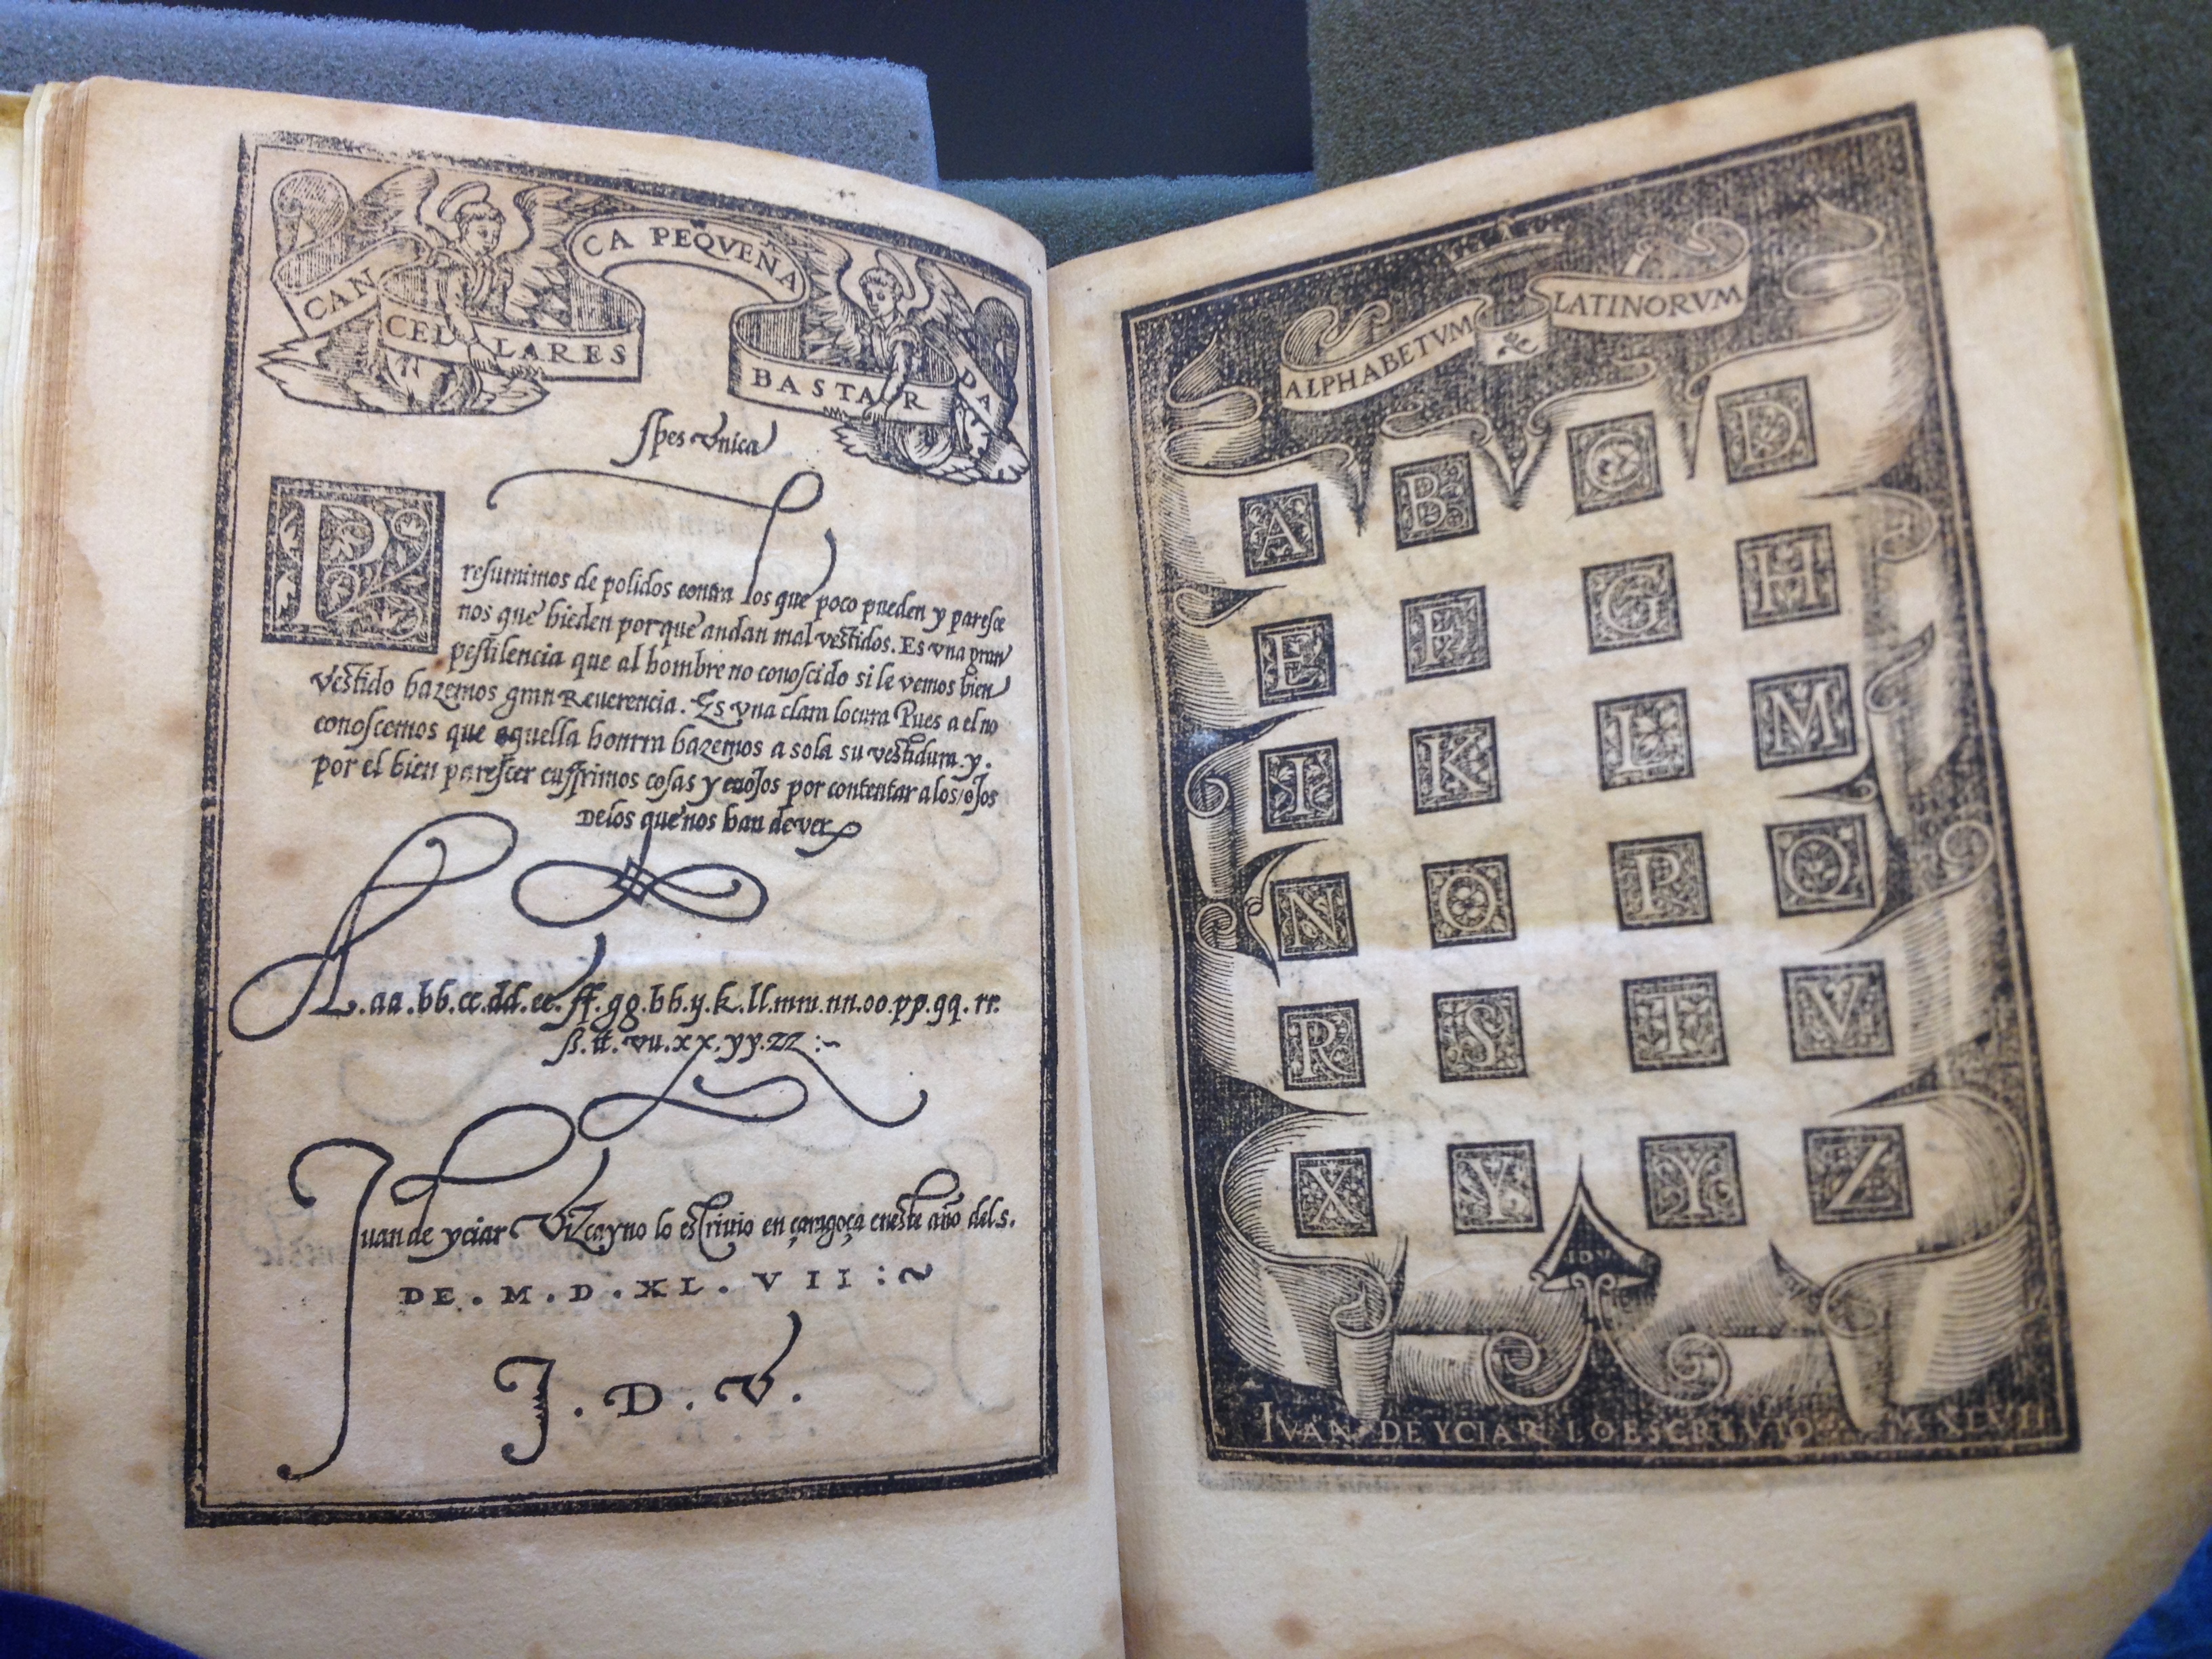 CANCELLARESCA PEQVEÑA
BASTARDA
Spes vnica
Presumimos de polidos contra los que poco pueden y paresce
nos que hieden porque andan mal vestidos. Es vna gran
pestilencia que al hombre no conoscido si le vemos bien
vestido hazemos gran Reuerencia. Es vna clara locura Pues a el no
conoscemos que aquella honrra hazemos a sola su vestidura. y.
por el bien parescer cuffrimos cosas y enojos por contentar a los ojos
Delos que nos han de ver
A.aa.bb.cc.dd.ee.ff.gg.hh.y.k.ll.mm.nn.oo.pp.qq.rr.
ß.tt.vu.xx.yy.zz :~
Juan de yciar Vizcayno lo escrivio en çaragoça eneste año del.s.
DE . M . D . XL . V I I :~
J . D . V .
ALPHABETVM LATINORVM
A B C D
E F G H
I K L M
N O P Q
R S T V
X Y Y Z
I D V
IVAN DE YCIAR LO ESCRIVIO M XLVII